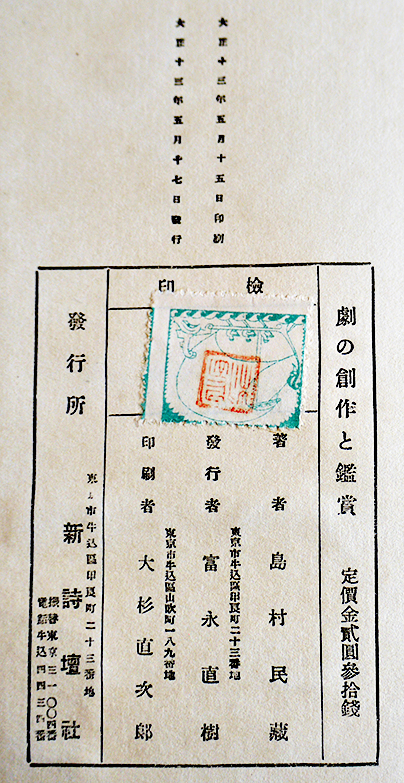 大正十三年五月十五日印刷
大正十三年五月十七日發行
劇の創作と鑑賞 定價金貳圓參拾錢
檢印
著者 島村民藏
東京市牛込區印良町二十三番地
發行者 富永直樹
東京市牛込區山吹町一八九番地
印刷者 大杉直次郎
發行所
市牛込區印良町二十三番地
新詩壇社
振替東京三一〇〇四番
電話牛込四四三四番